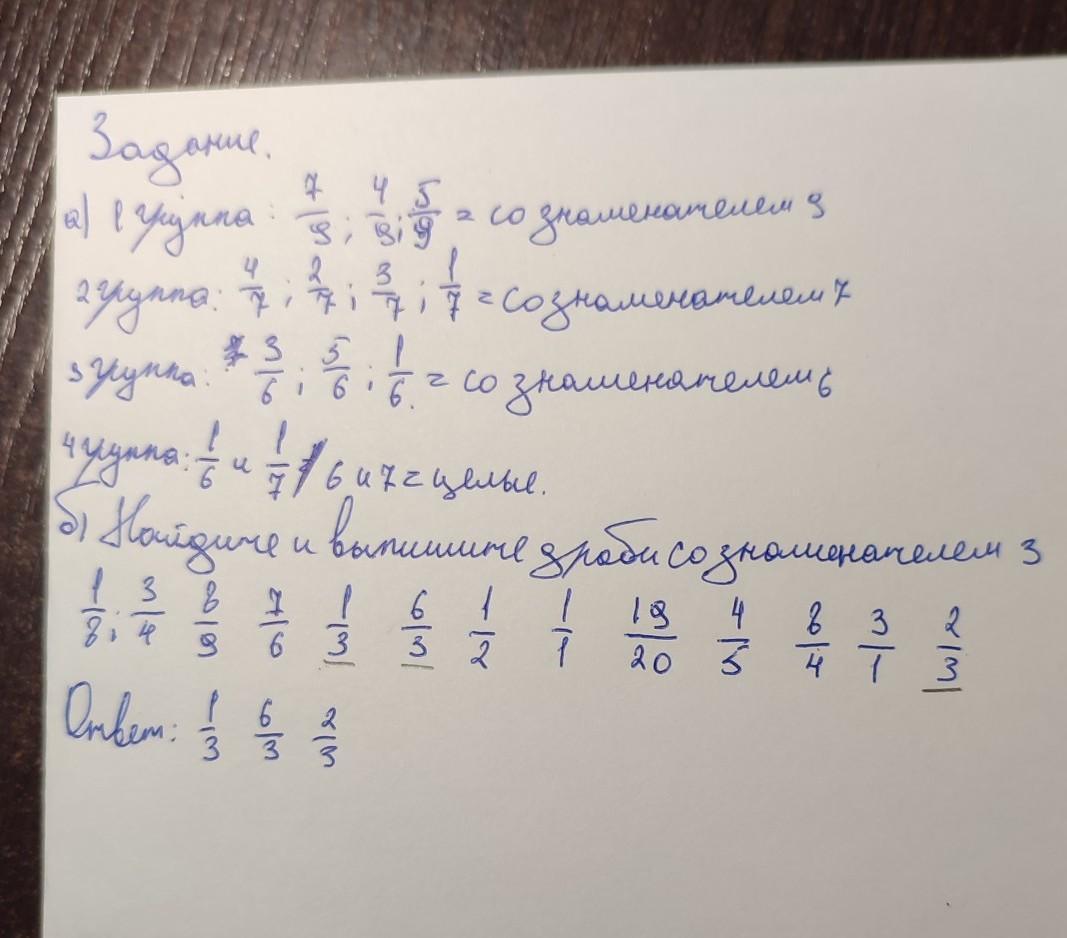 Задание.
а) 1 группа: 7/9; 4/9; 5/9 = со знаменателем 9
2 группа: 4/7; 2/7; 3/7; 1/7 = со знаменателем 7
3 группа: 3/6; 5/6; 1/6. = со знаменателем 6
4 группа: 1/6 и 1/7 6 и 7 = целые.
б) Найдите и выпишите дроби со знаменателем 3
1/8; 3/4 8/9 7/6 1/3 6/3 1/2 1/1 19/20 4/5 8/4 3/1 2/3
Ответ: 1/3 6/3 2/3